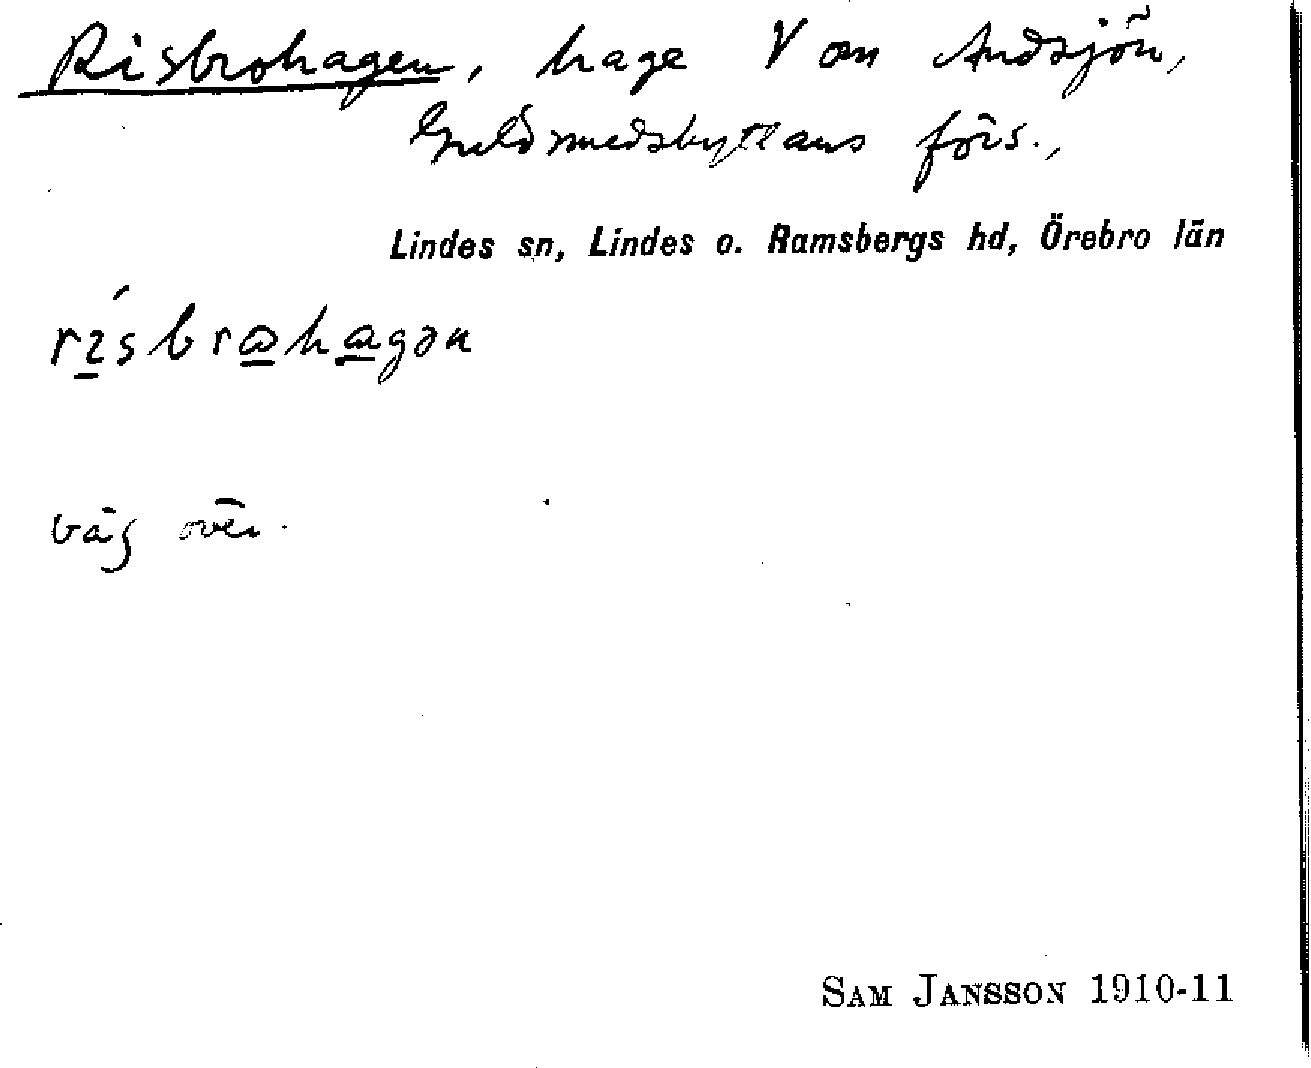 Risbrohagen, hage V om Andsjön,
Guldsmedshyttans förs.,
Lindes sn, Lindes o. Ramsbergs hd, Örebro län
rísbrωhαgən
väg över.
SAM JANSSON 1910-11